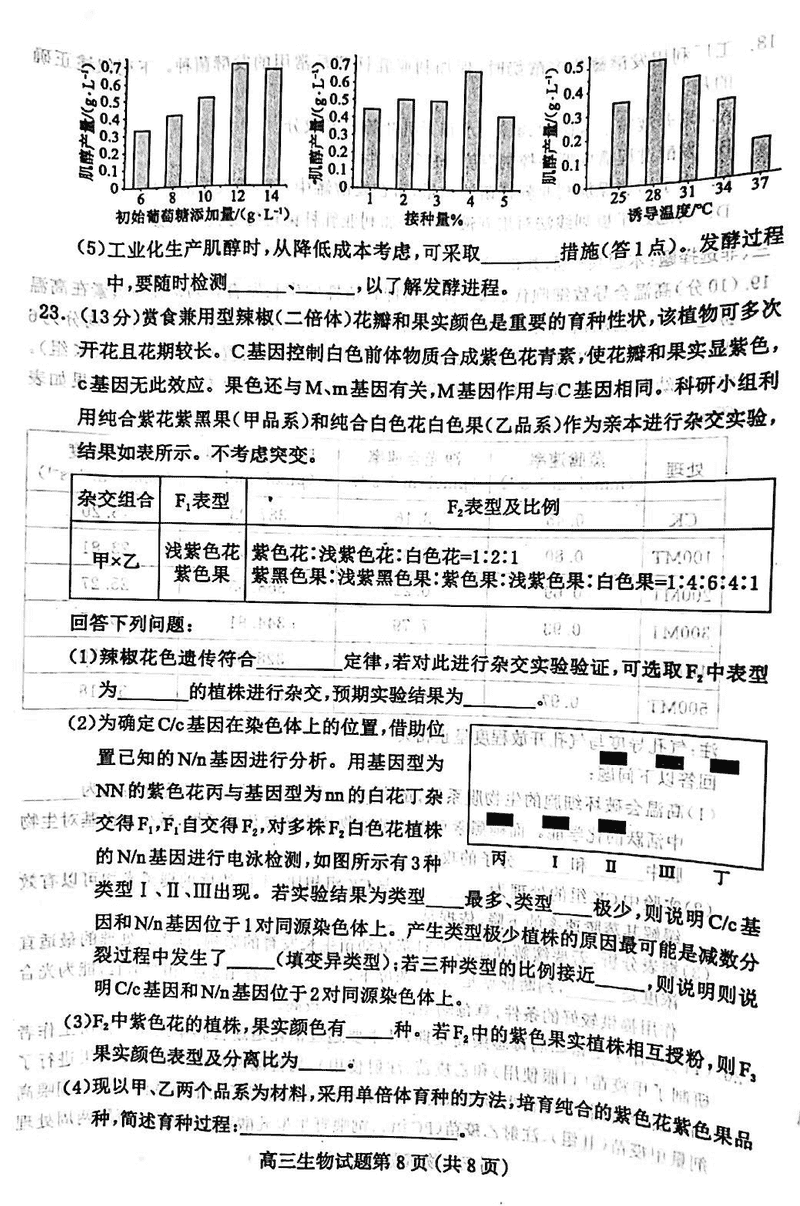 肌醇产量/(g·L⁻¹)
0.7
0.6
0.5
0.4
0.3
0.2
0.1
0
6 8 10 12 14
初始葡萄糖添加量/(g·L⁻¹)
肌醇产量/(g·L⁻¹)
0.7
0.6
0.5
0.4
0.3
0.2
0.1
0
1 2 3 4 5
接种量%
肌醇产量/(g·L⁻¹)
0.5
0.4
0.3
0.2
0.1
0
25 28 31 34 37
诱导温度/℃
(5)工业化生产肌醇时,从降低成本考虑,可采取______措施(答1点)。发酵过程
中,要随时检测______、______,以了解发酵进程。
23.(13分)赏食兼用型辣椒(二倍体)花瓣和果实颜色是重要的育种性状,该植物可多次
开花且花期较长。C基因控制白色前体物质合成紫色花青素,使花瓣和果实显紫色,
c基因无此效应。果色还与M、m基因有关,M基因作用与C基因相同。科研小组利
用纯合紫花紫黑果(甲品系)和纯合白色花白色果(乙品系)作为亲本进行杂交实验,
结果如表所示。不考虑突变。
杂交组合 F₁表型 F₂表型及比例
甲×乙 浅紫色花 紫色果 紫色花:浅紫色花:白色花=1:2:1
紫黑色果:浅紫黑色果:紫色果:浅紫色果:白色果=1:4:6:4:1
回答下列问题:
(1)辣椒花色遗传符合______定律,若对此进行杂交实验验证,可选取F₂中表型
为______的植株进行杂交,预期实验结果为______。
(2)为确定C/c基因在染色体上的位置,借助位
置已知的N/n基因进行分析。用基因型为
NN的紫色花丙与基因型为nn的白花丁杂
交得F₁,F₁自交得F₂,对多株F₂白色花植株
的N/n基因进行电泳检测,如图所示有3种
丙 Ⅰ Ⅱ Ⅲ 丁
类型Ⅰ、Ⅱ、Ⅲ出现。若实验结果为类型____最多、类型____极少,则说明C/c基
因和N/n基因位于1对同源染色体上。产生类型极少植株的原因最可能是减数分
裂过程中发生了____(填变异类型);若三种类型的比例接近____,则说明则说
明C/c基因和N/n基因位于2对同源染色体上。
(3)F₂中紫色花的植株,果实颜色有____种。若F₂中的紫色果实植株相互授粉,则F₃
果实颜色表型及分离比为____。
(4)现以甲、乙两个品系为材料,采用单倍体育种的方法,培育纯合的紫色花紫色果品
种,简述育种过程:____________________。
高三生物试题第8页(共8页)